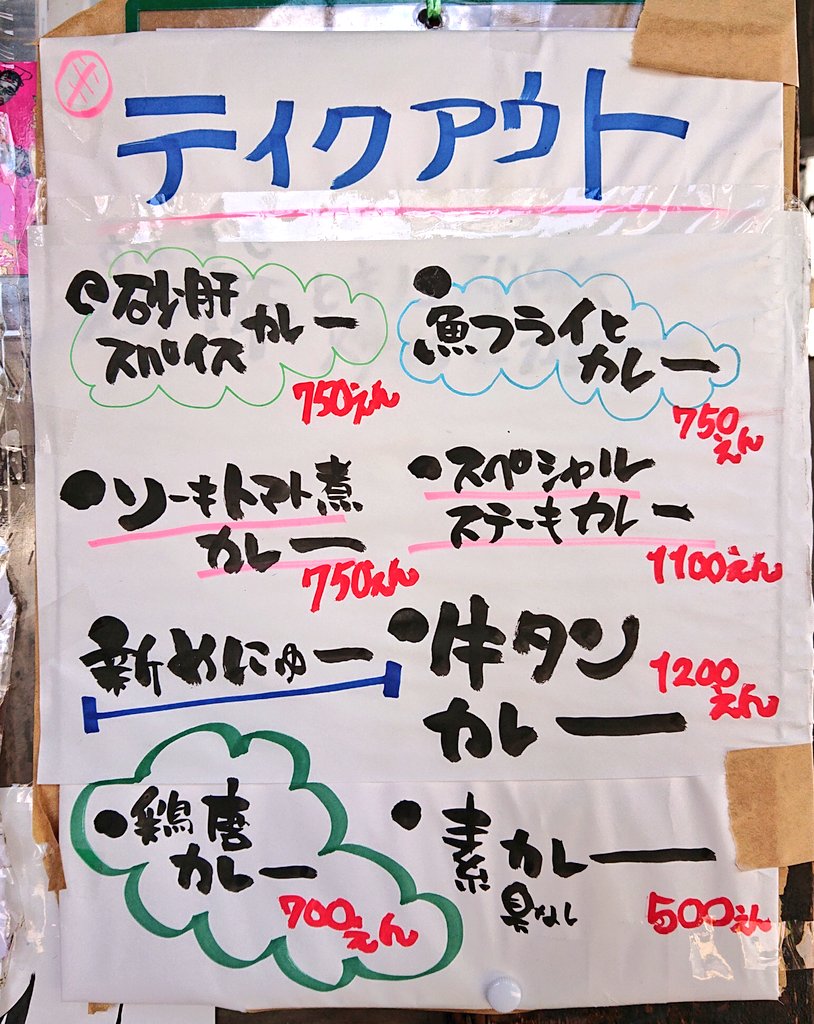 テイクアウト
砂肝
スパイス
カレー
750えん
魚フライと
カレー
750
えん
ソーキトマト煮
カレー
750えん
スペシャル
ステーキカレー
1100えん
新めにゅー
牛タン
カレー
1200
えん
鶏唐
カレー
700えん
素カレー
具なし
500えん